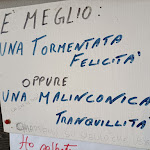 E MEGLIO:
UNA TORMENTATA
FELICITA'
OPPURE
UNA MALINCONICA
TRANQUILLITA'
Ho